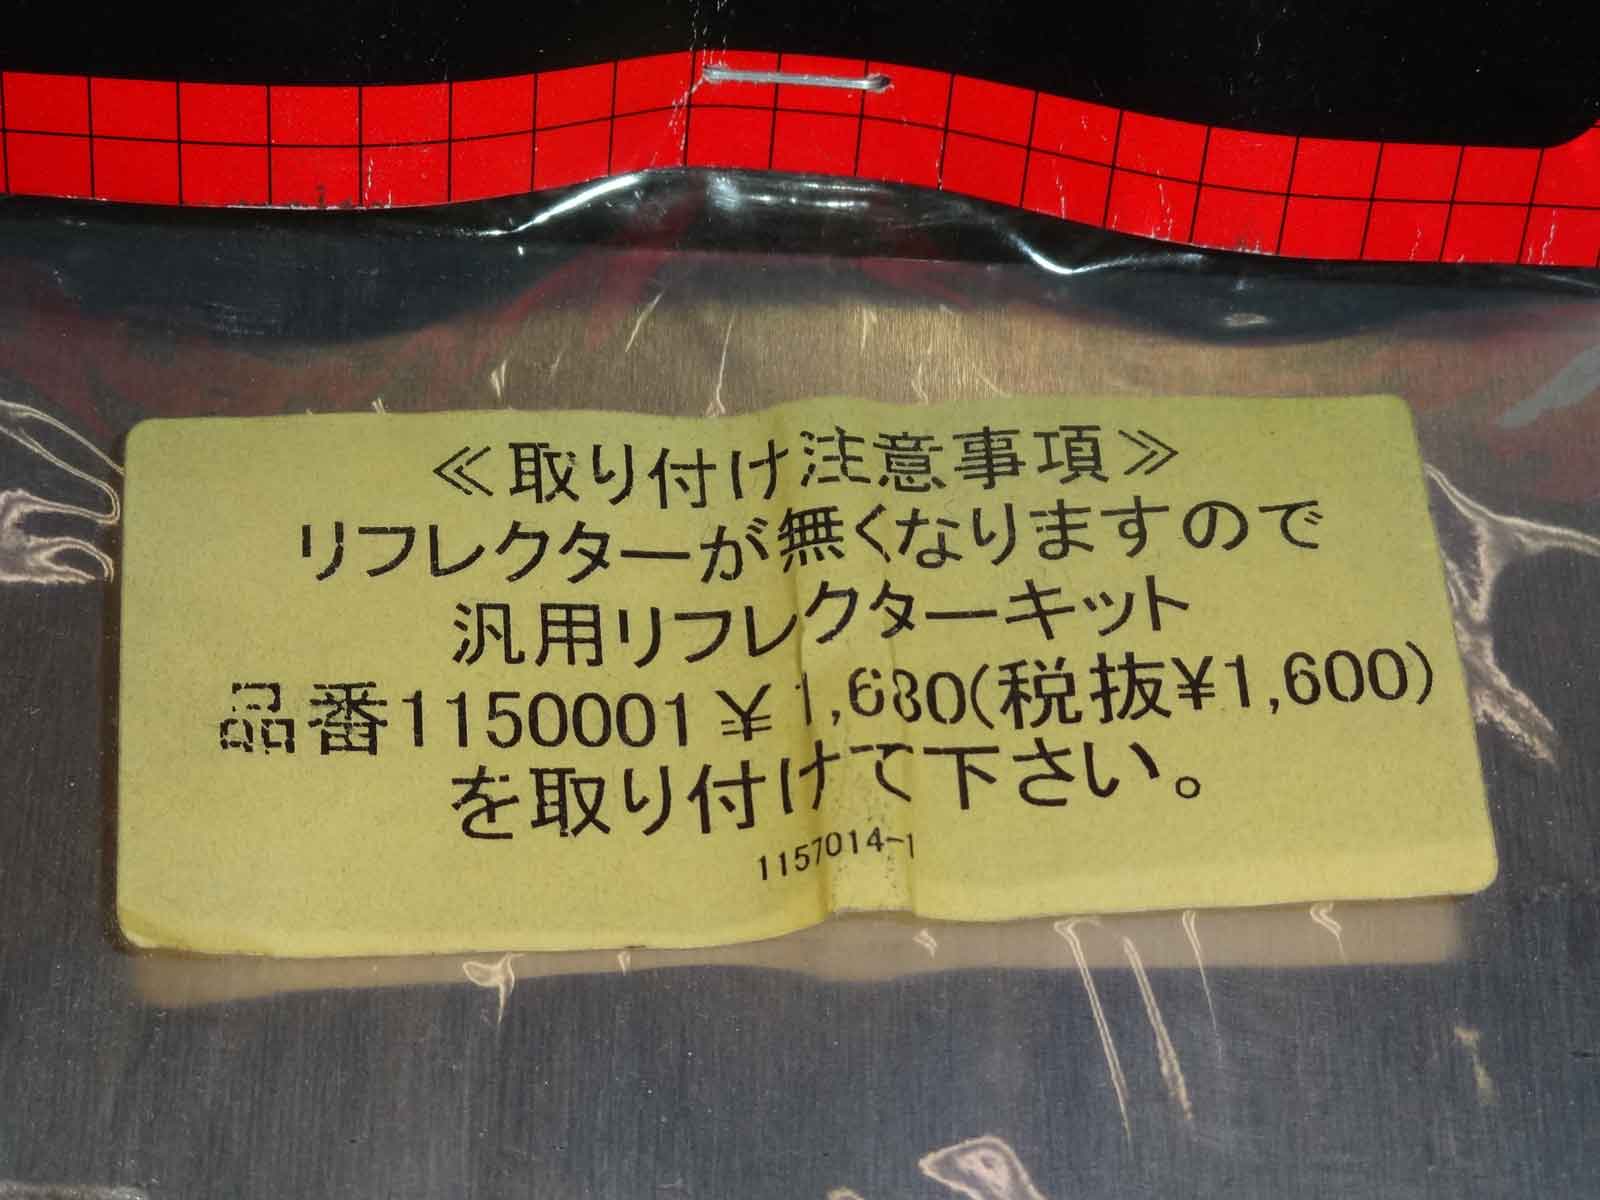 ≪取り付け注意事項≫
リフレクターが無くなりますので
汎用リフレクターキット
品番1150001¥1,680(税抜¥1,600)
を取り付けて下さい。
1157014-1